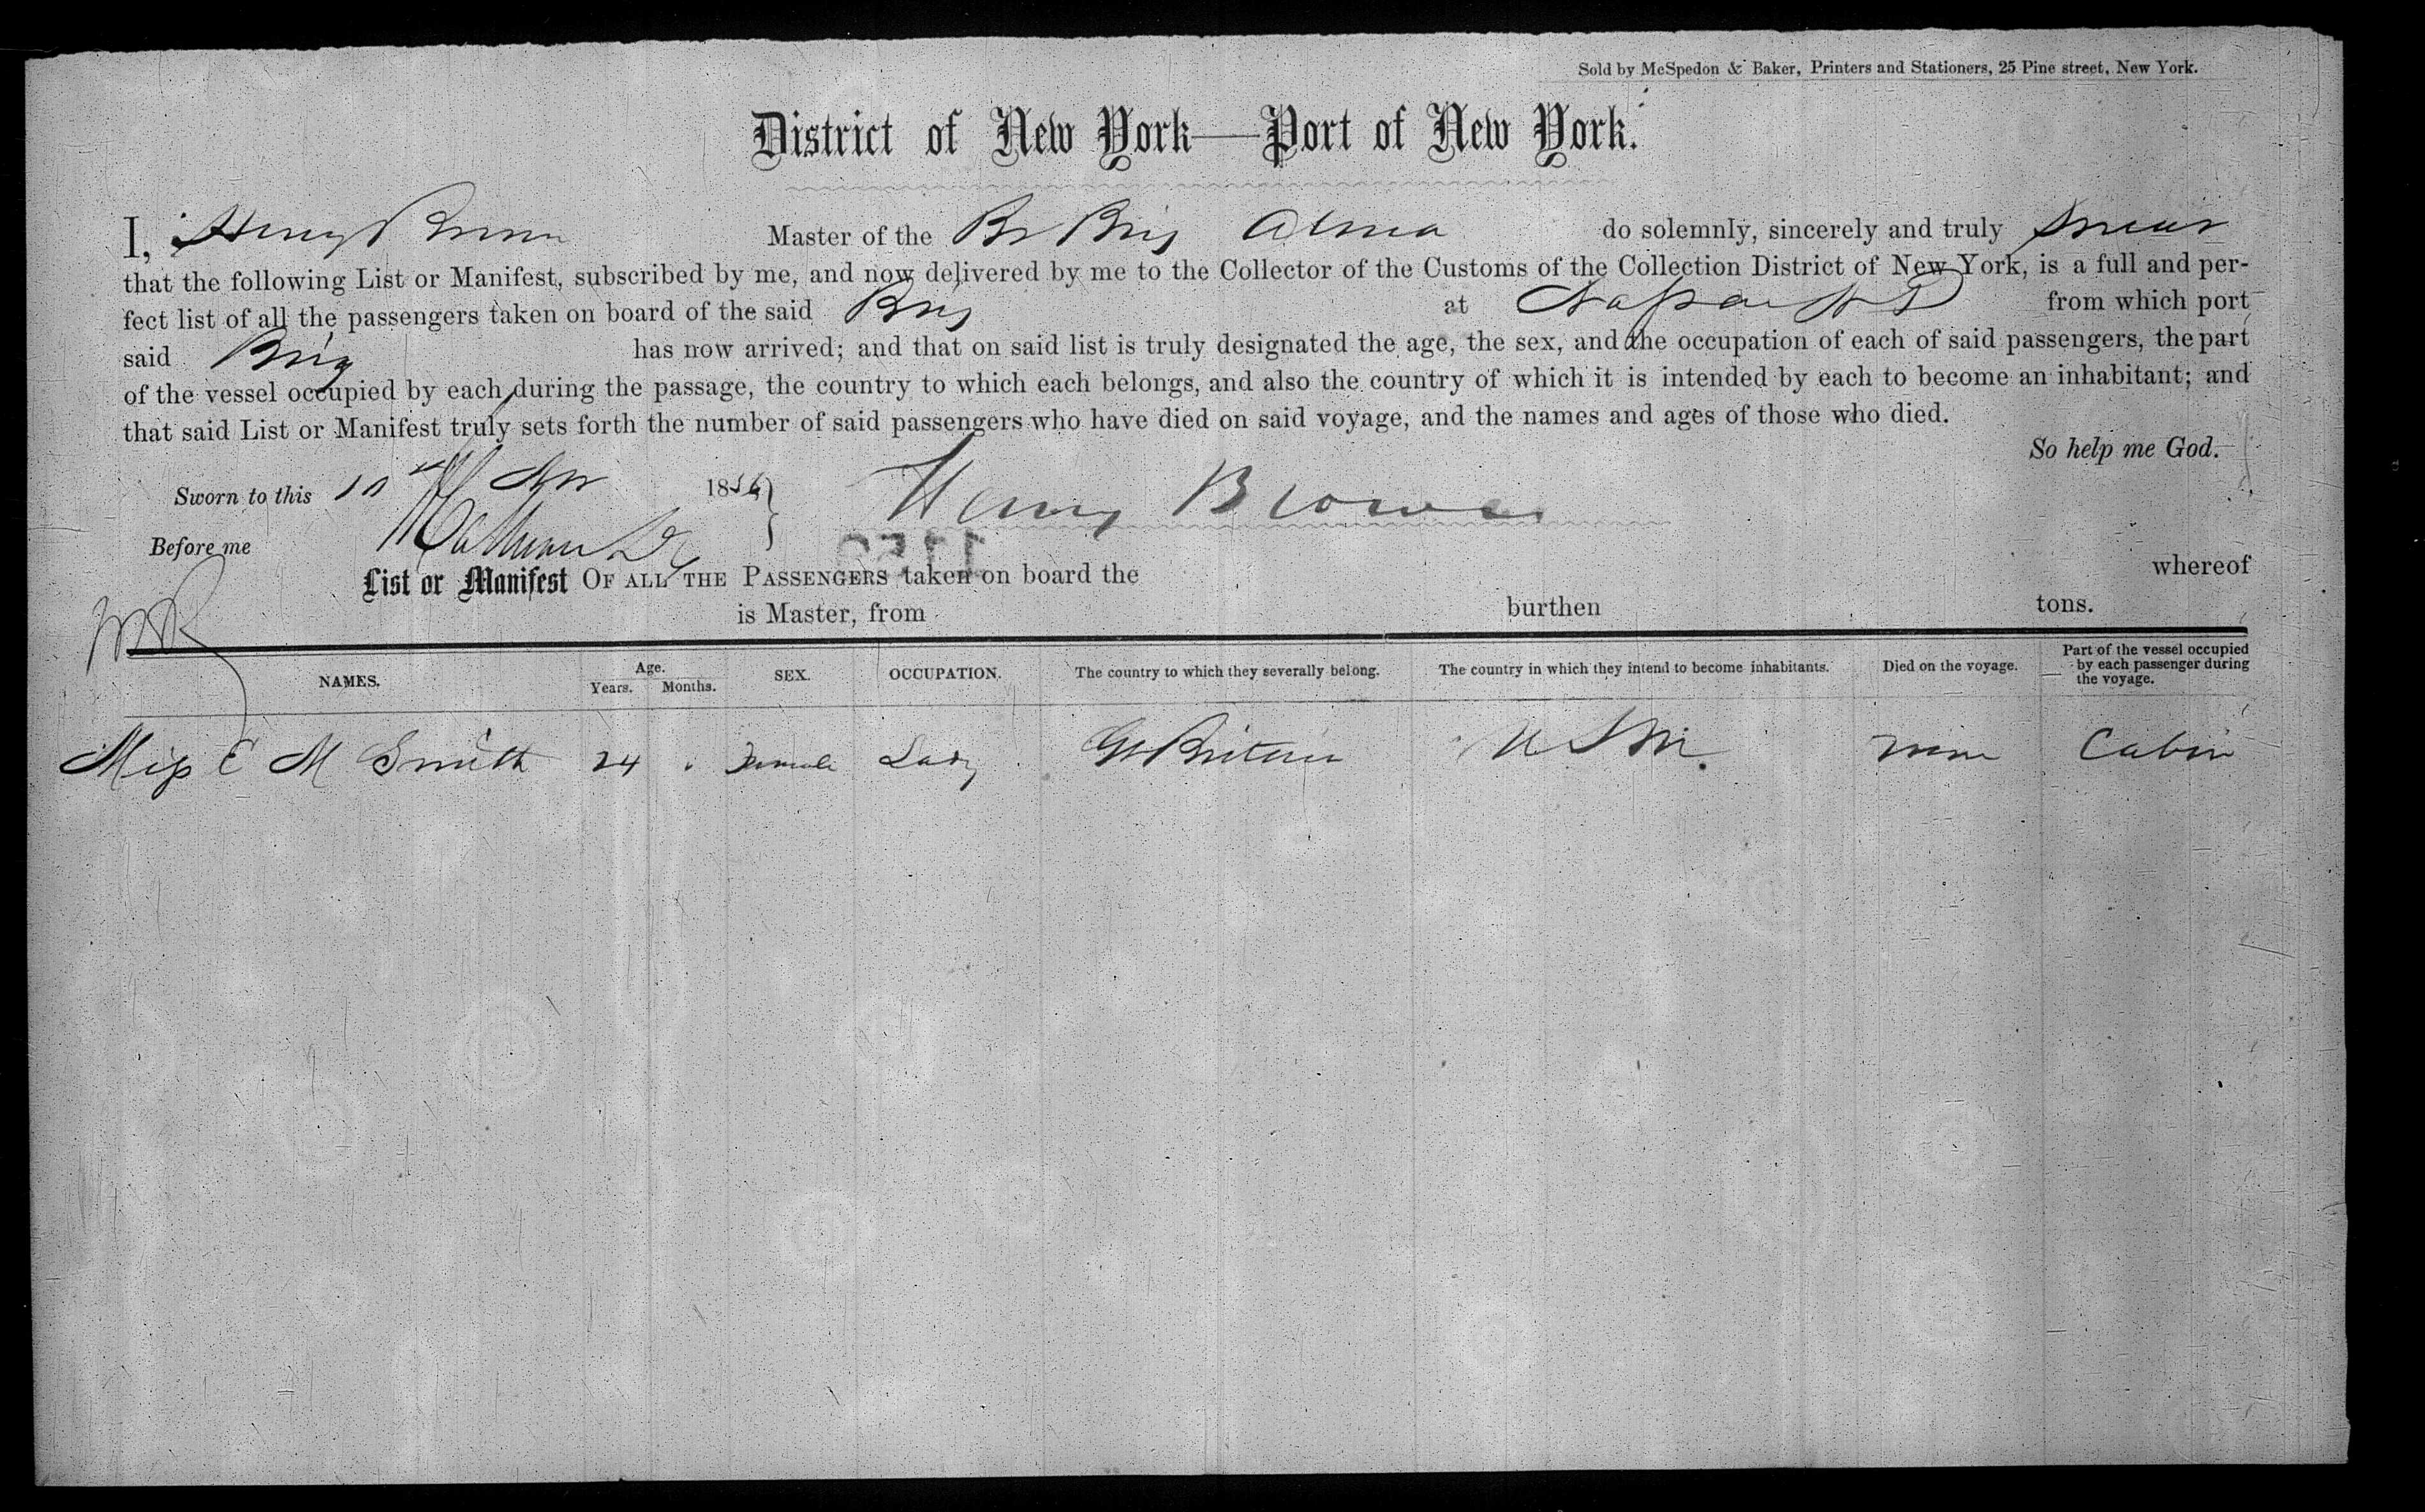 Sold by McSpedon & Baker, Printers and Stationers, 25 Pine street, New York.
District of New York—Port of New York.
I, Henry Brown Master of the Br Brig Alma do solemnly, sincerely and truly swear
that the following List or Manifest, subscribed by me, and now delivered by me to the Collector of the Customs of the Collection District of New York, is a full and per-
fect list of all the passengers taken on board of the said Brig at Nassau N P from which port
said Brig has now arrived; and that on said list is truly designated the age, the sex, and the occupation of each of said passengers, the part
of the vessel occupied by each during the passage, the country to which each belongs, and also the country of which it is intended by each to become an inhabitant; and
that said List or Manifest truly sets forth the number of said passengers who have died on said voyage, and the names and ages of those who died.
So help me God.
Sworn to this 1856 } Henry Brown
Before me
List or Manifest OF ALL THE PASSENGERS taken on board the whereof
is Master, from burthen tons.
NAMES. Age. Years. Months. SEX. OCCUPATION. The country to which they severally belong. The country in which they intend to become inhabitants. Died on the voyage. Part of the vessel occupied by each passenger during the voyage.
Miss E M Smith 24 Female Lady Gt Britain none Cabin